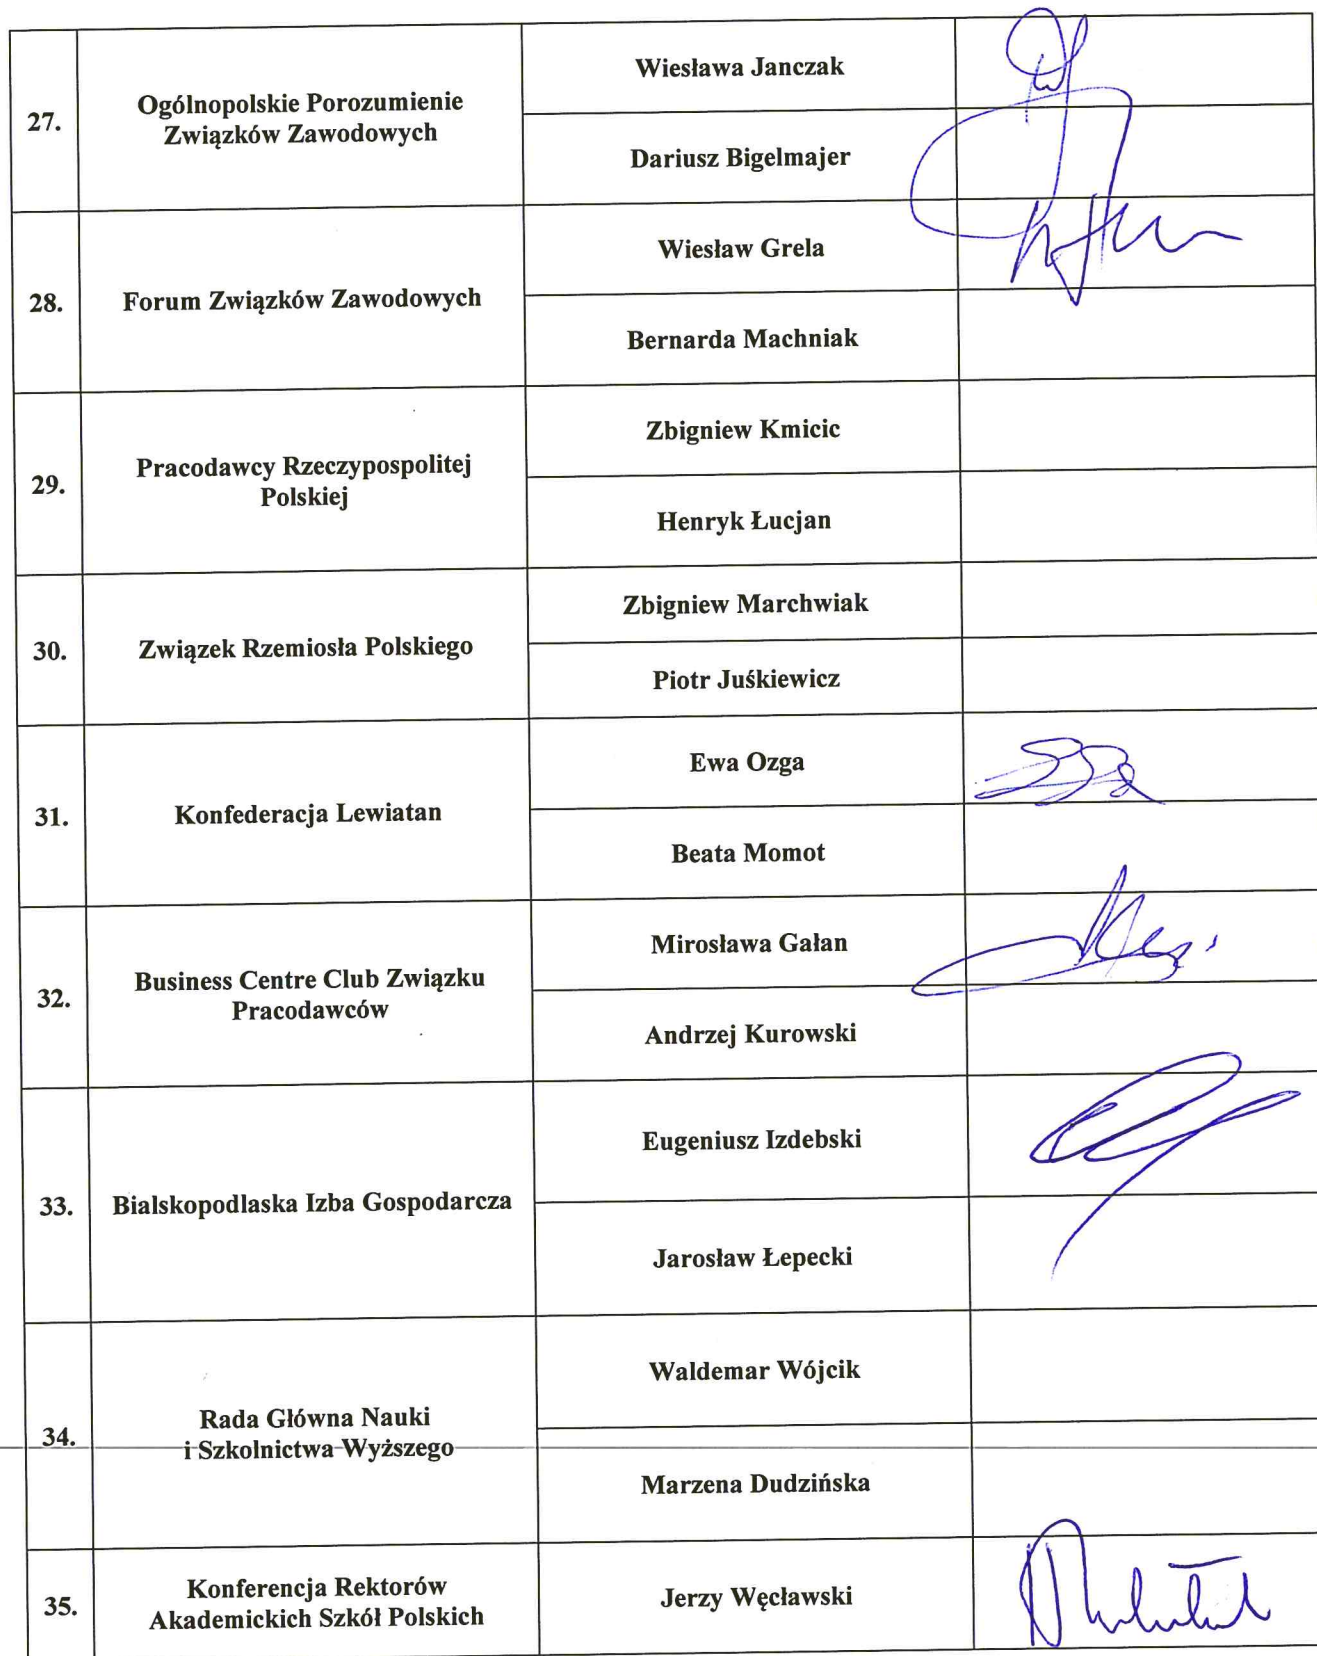 27.
Ogólnopolskie Porozumienie
Związków Zawodowych
Wiesława Janczak
Dariusz Bigelmajer
28.
Forum Związków Zawodowych
Wiesław Grela
Bernarda Machniak
29.
Pracodawcy Rzeczypospolitej
Polskiej
Zbigniew Kmicic
Henryk Łucjan
30.
Związek Rzemiosła Polskiego
Zbigniew Marchwiak
Piotr Juśkiewicz
31.
Konfederacja Lewiatan
Ewa Ozga
Beata Momot
32.
Business Centre Club Związku
Pracodawców
Mirosława Gałan
Andrzej Kurowski
33.
Bialskopodlaska Izba Gospodarcza
Eugeniusz Izdebski
Jarosław Łepecki
34.
Rada Główna Nauki
i Szkolnictwa Wyższego
Waldemar Wójcik
Marzena Dudzińska
35.
Konferencja Rektorów
Akademickich Szkół Polskich
Jerzy Węcławski